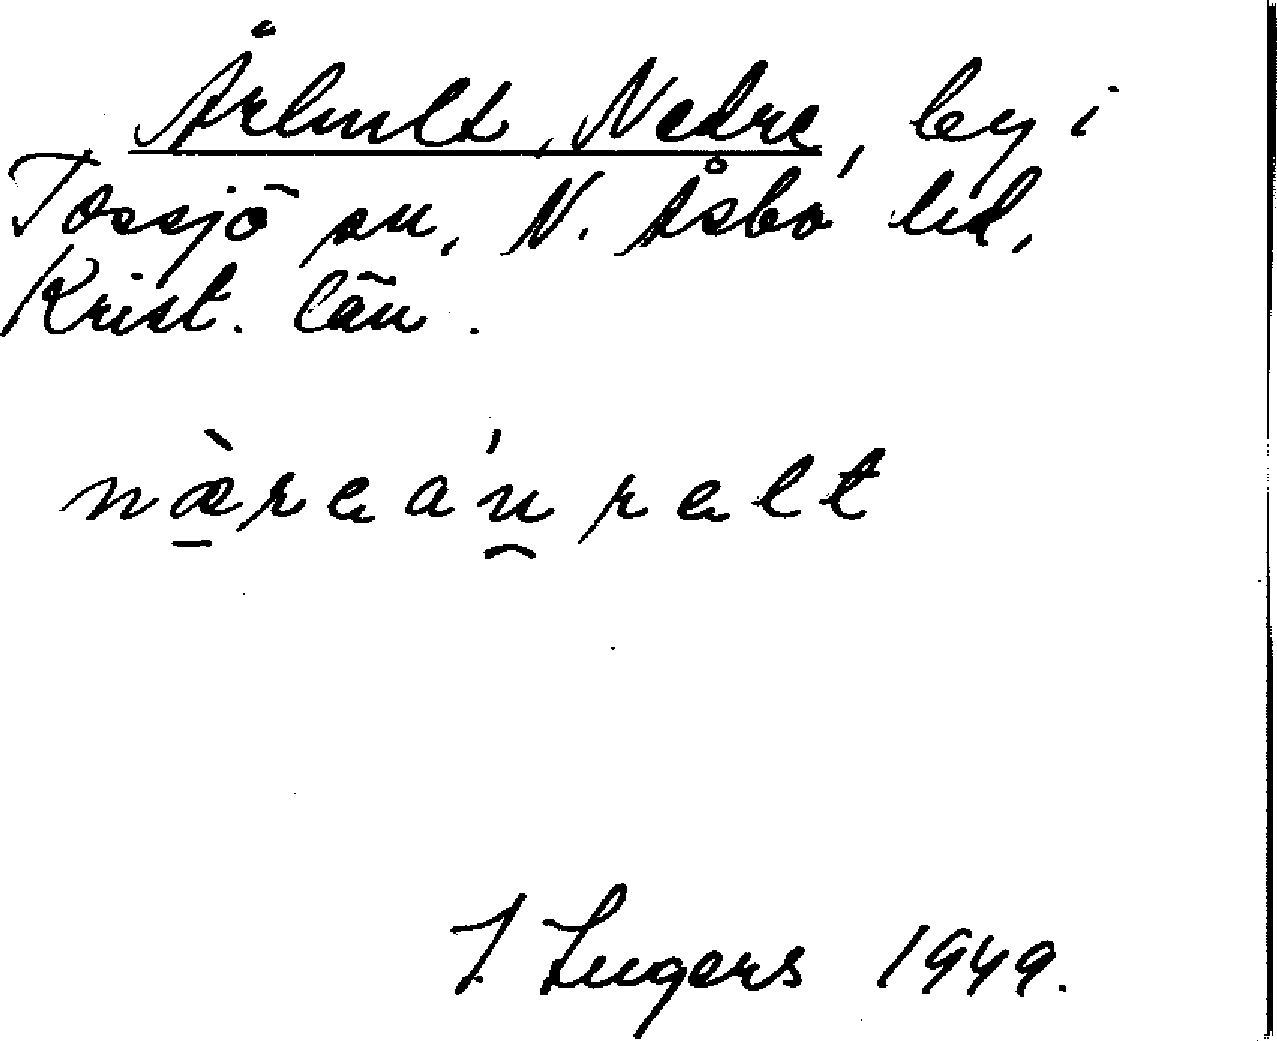 Århult, Nedre, by i
Tossjö sn, N. Åsbo hd,
Krist. län.
nærea u relt
J Ingers 1949.